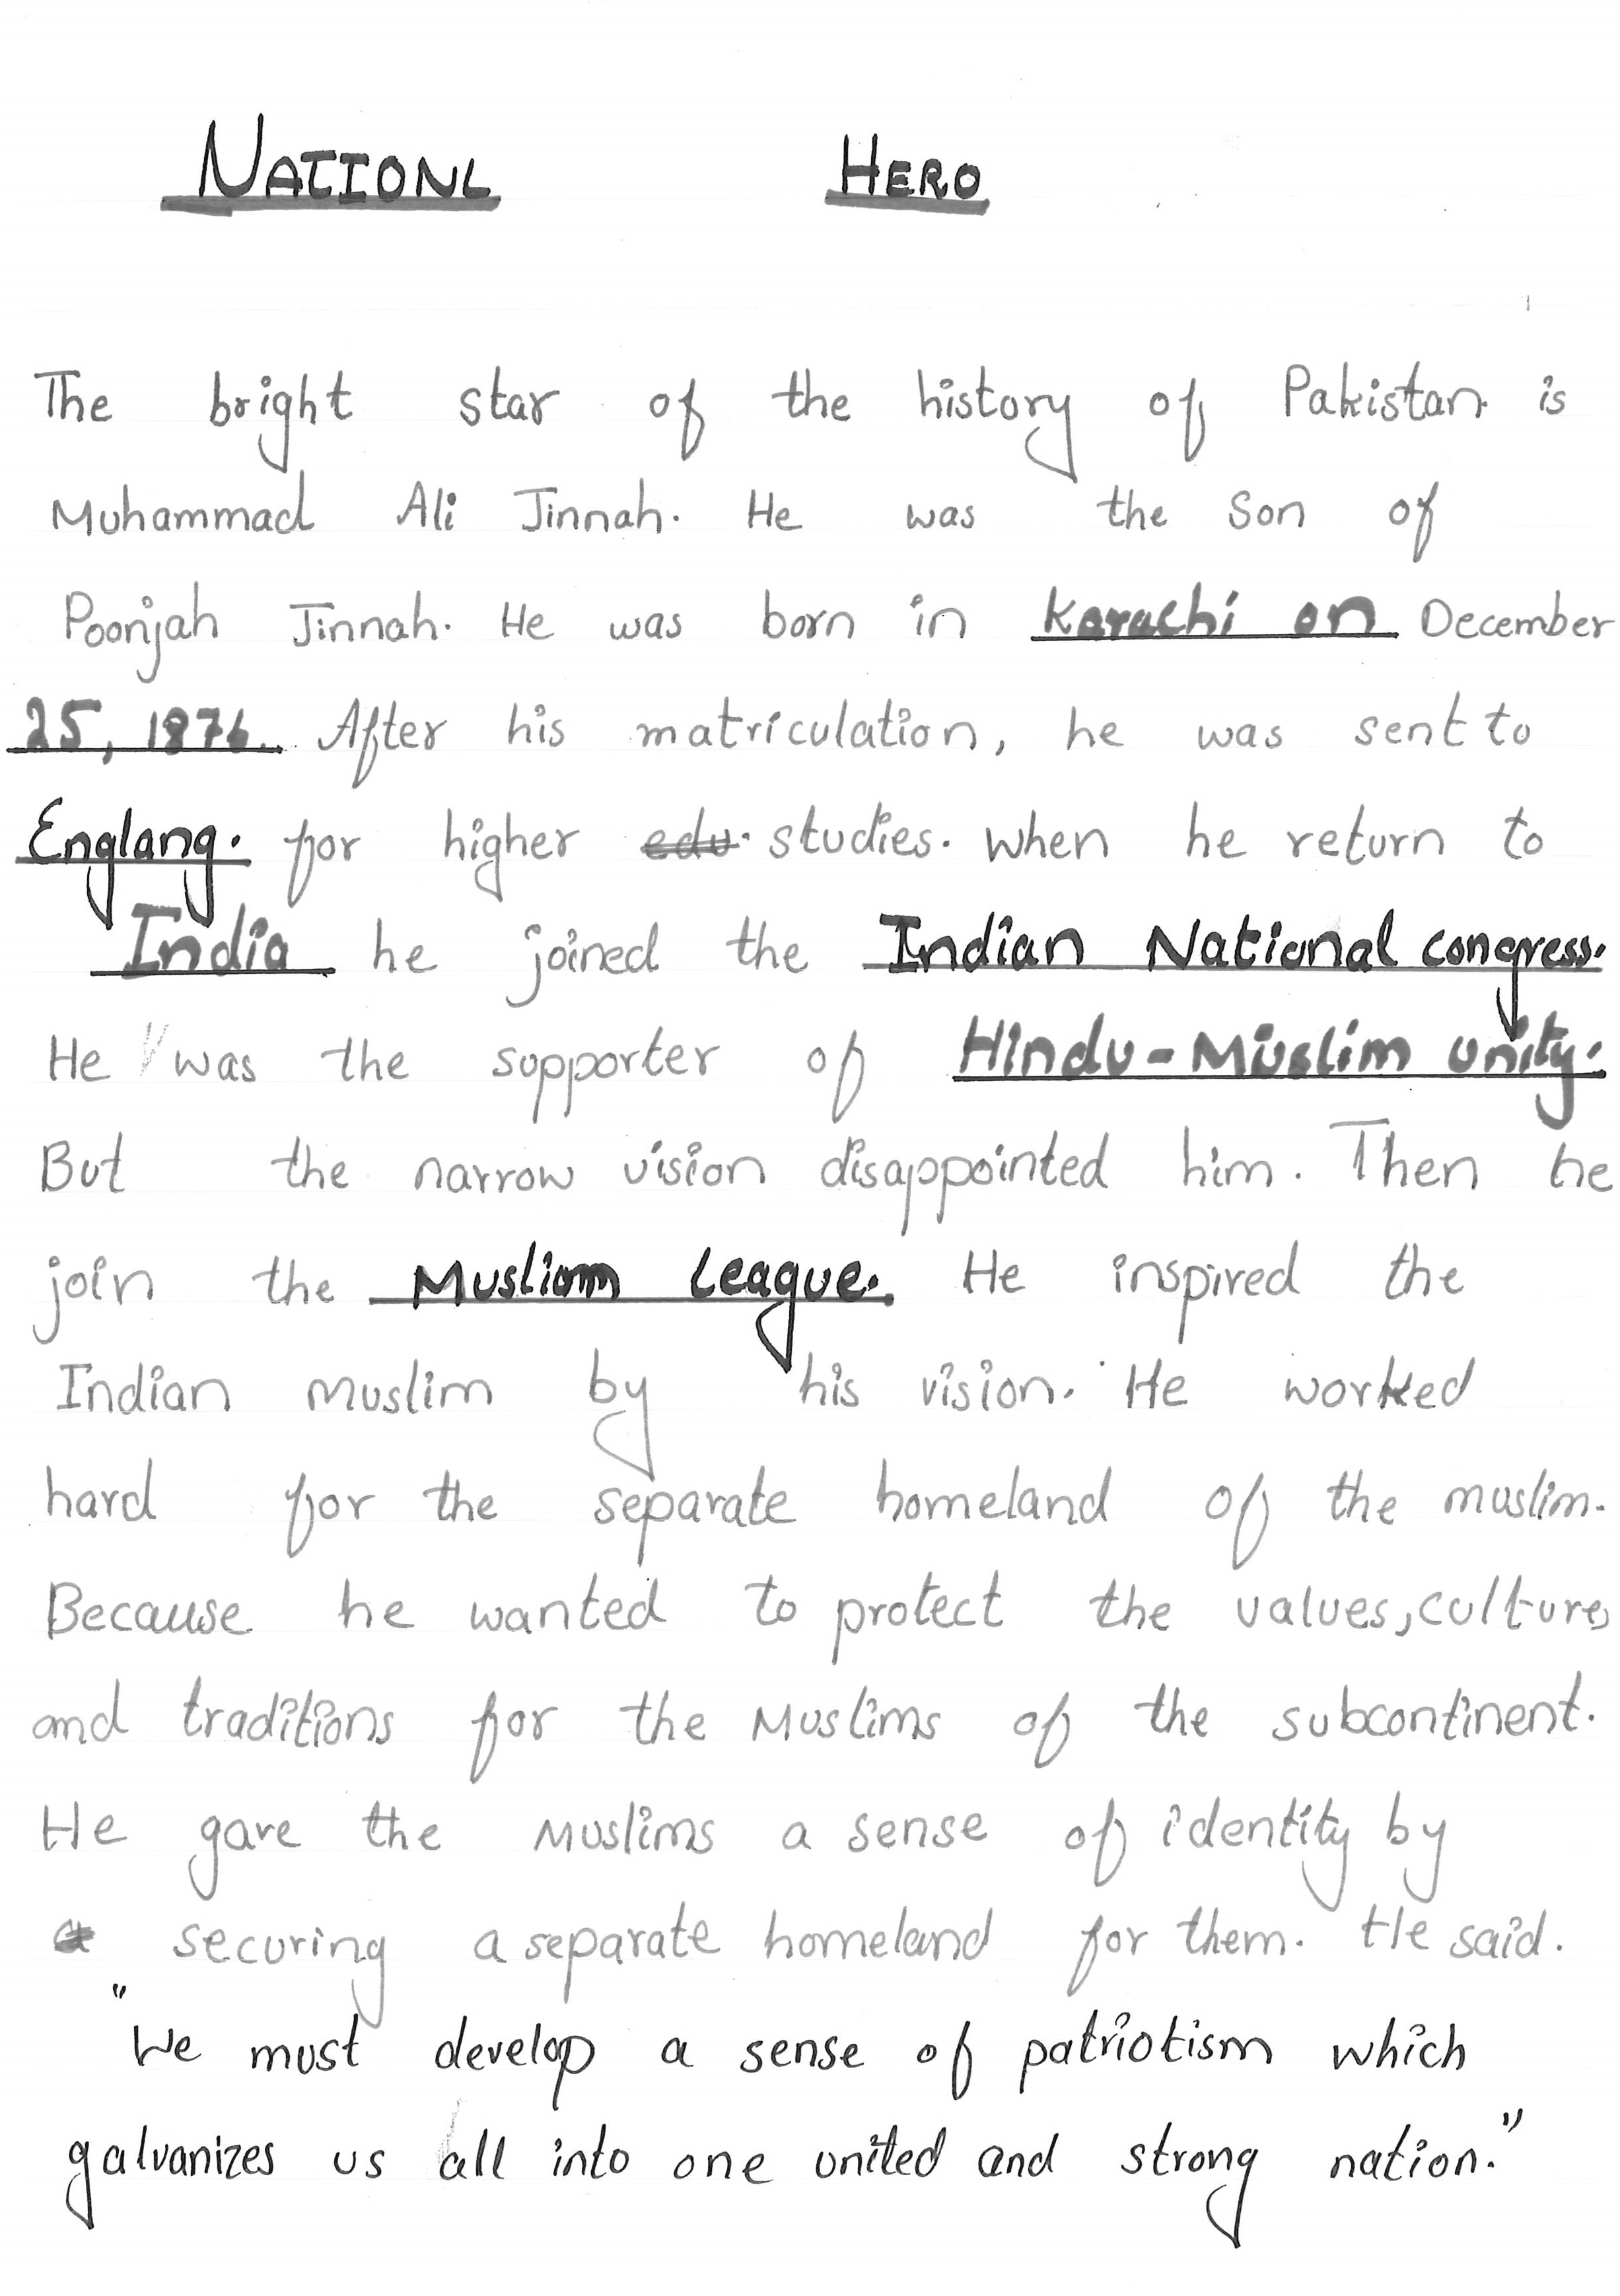 NATIONL HERO
The bright star of the history of Pakistan is
Muhammad Ali Jinnah. He was the Son of
Poonjah Jinnah. He was born in Karachi on December
25, 1876. After his matriculation, he was sent to
Englang. for higher edu. studies. When he return to
India he joined the Indian National congress.
He was the supporter of Hindu-Muslim unity.
But the narrow vision disappointed him. Then he
join the Musliom league. He inspired the
Indian muslim by his vision. He worked
hard for the separate homeland of the muslim.
Because he wanted to protect the values, culture,
and traditions for the Muslims of the subcontinent.
He gave the Muslims a sense of identity by
securing a separate homeland for them. He said.
"We must develop a sense of patriotism which
galvanizes us all into one united and strong nation."